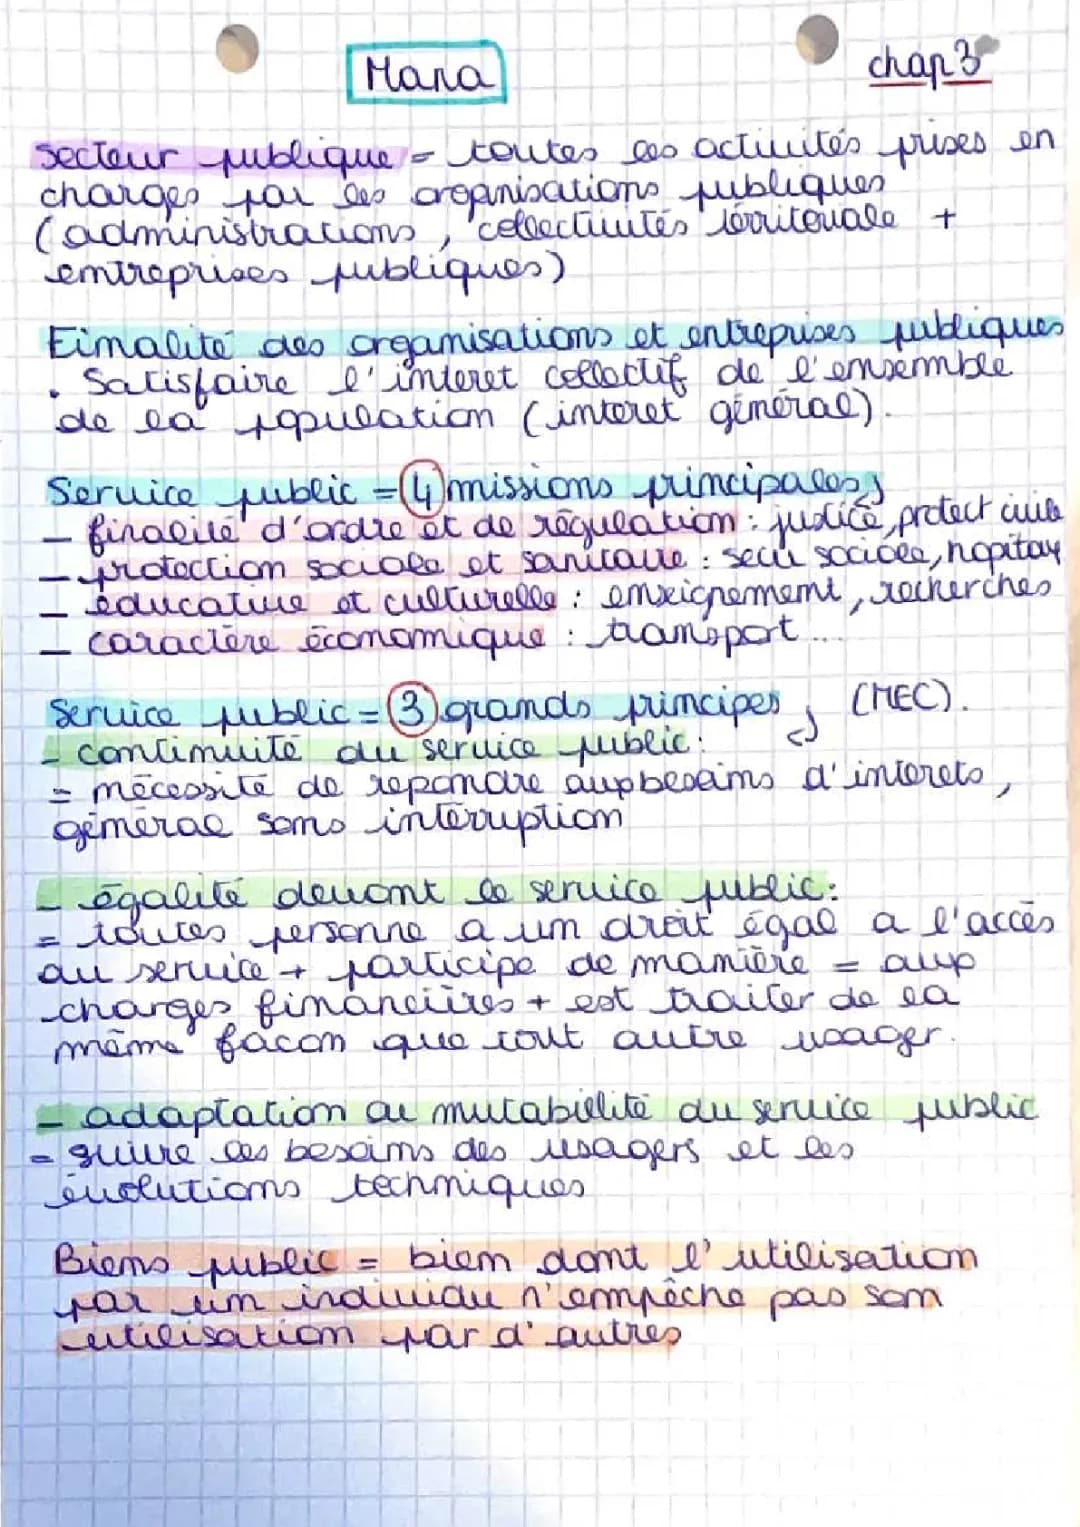 Mana
chap 3
secteur publique = toutes les activités prises en
charges par les organisations publiques
(administrations, collectivités térritoriale +
entreprises publiques)
Finalité des organisations et entreprises publiques
. Satisfaire l'interet collectif de l'ensemble
de la population (interet général).
Service public = 4 missions principales
- finalité d'ordre et de régulation : justice, protect civile
- protection sociale et sanitaire : secu sociale, hopitaux
- éducative et culturelle : enseignement, recherches
- caractère économique : transport ...
Service public = 3 grands principes (MEC).
- continuité du service public :
= nécessité de repondre aux besoins d'interets,
général sans interruption
- égalité devant le service public :
= toutes personne a un droit égal a l'accès
au service + participe de manière = aux
charges financières + est traiter de la
même facon que tout autre usager.
- adaptation ou mutabilité du service public
= suivre les besoins des usagers et les
évolutions techniques
Biens public = bien dont l'utilisation
par un individu n'empêche pas son
utilisation par d'autres